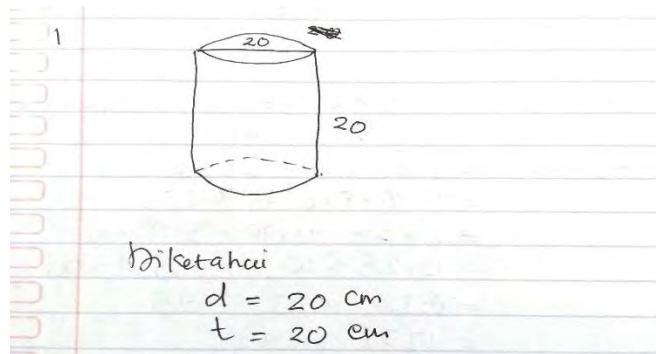 1
20
20
Diketahui
d = 20 cm
t = 20 cm